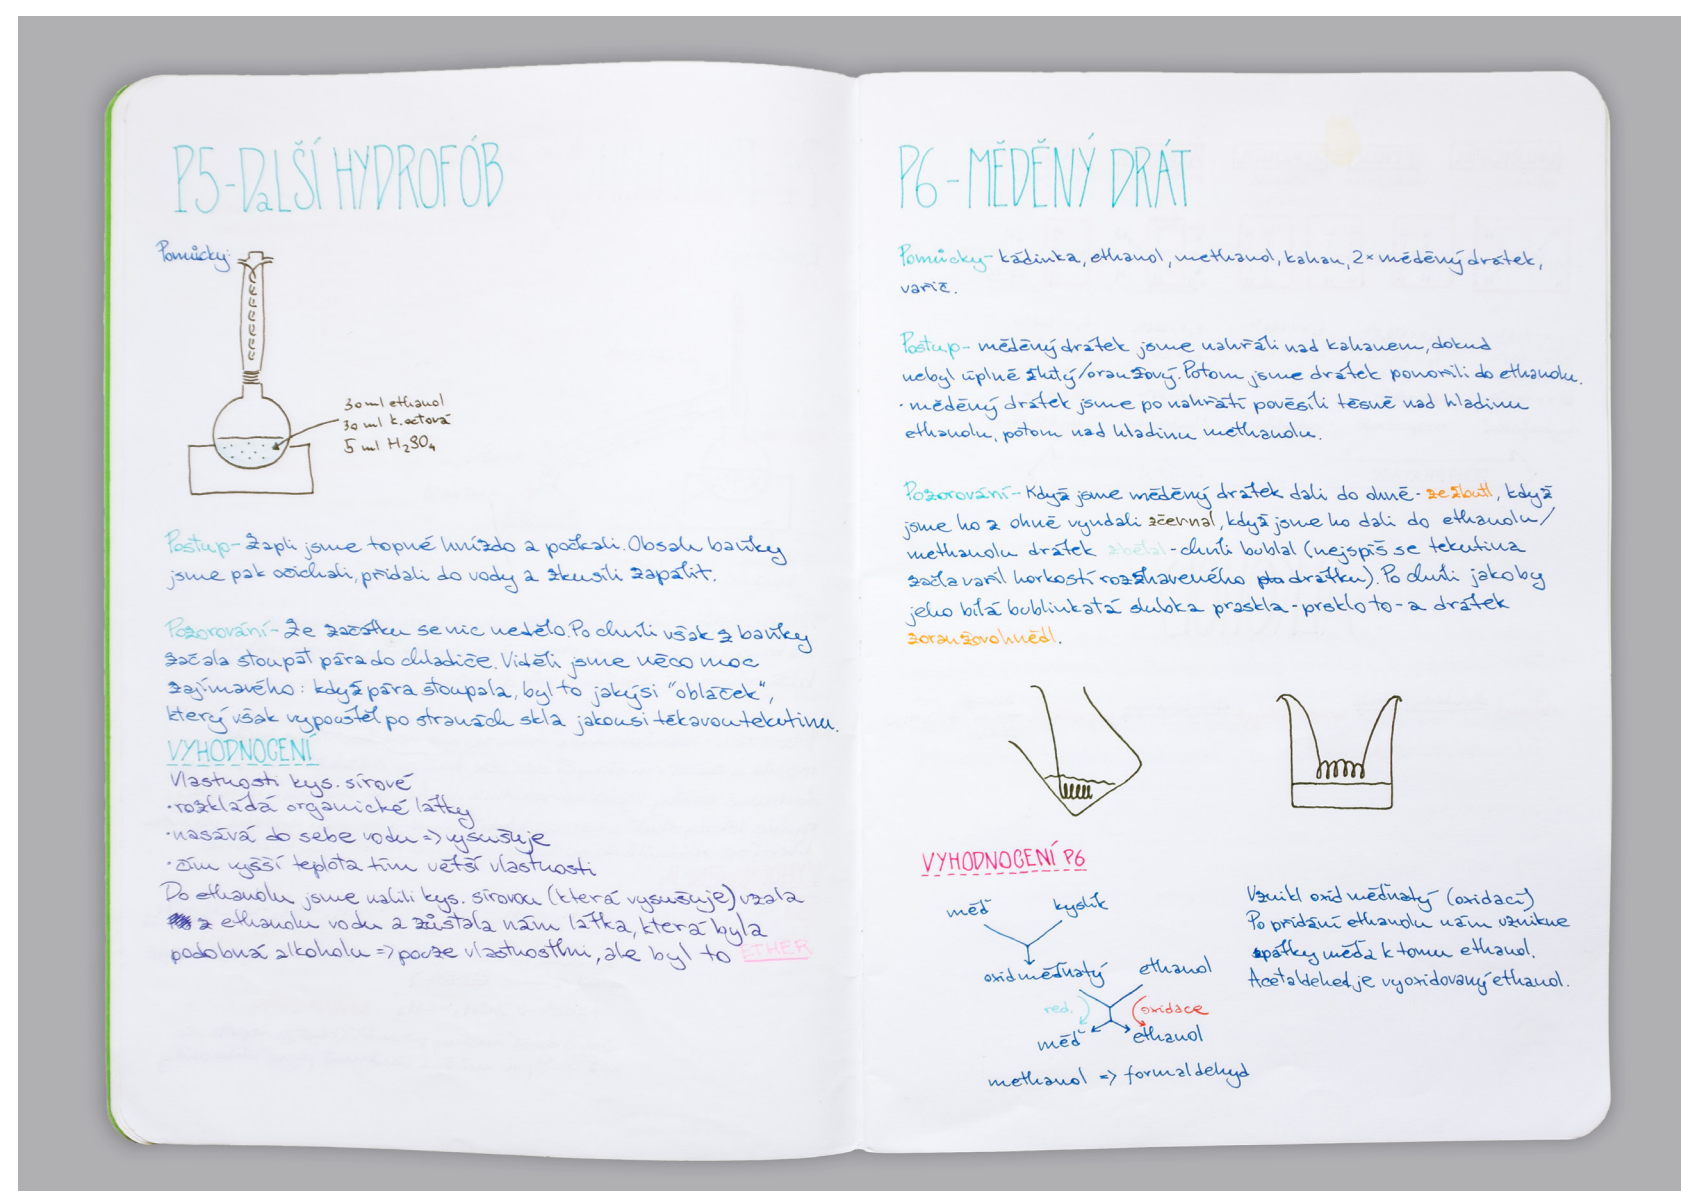 P5-DaLŠÍ HYDROFÓB
Pomůcky:
30 ml ethanol
30 ml k. octová
5 ml H₂SO₄
Postup- Zapli jsme topné hnízdo a počkali. Obsah baňky
jsme pak očichali, přidali do vody a zkusili zapálit.
Pozorování- Ze začátku se nic nedělo. Po chvíli však z baňky
začala stoupat pára do chladiče. Viděli jsme něco moc
zajímavého: když pára stoupala, byl to jakýsi "obláček",
který však vypouštěl po stranách skla jakousi tékavou tekutinu.
VYHODNOCENÍ
Vlastnosti kys. sírové
·rozkládá organické látky
·nasává do sebe vodu => vysušuje
·čím vyšší teplota tím větší vlastnosti
Do ethanolu jsme nalili kys. sírovou (která vysušuje) vzala
z ethanolu vodu a zůstala nám látka, která byla
podobná alkoholu => pouze vlastnostmi, ale byl to ETHER
P6-MĚDĚNÝ DRÁT
Pomůcky- kádinka, ethanol, methanol, kahan, 2× měděný drátek,
vařič.
Postup- měděný drátek jsme nahřáli nad kahanem, dokud
nebyl úplně žlutý/oranžový. Potom jsme drátek ponořili do ethanolu.
·měděný drátek jsme po nahřátí pověsili těsně nad hladinu
ethanolu, potom nad hladinu methanolu.
Pozorování- Když jsme měděný drátek dali do ohně- zežloutl, když
jsme ho z ohně vyndali zčernal, když jsme ho dali do ethanolu/
methanolu drátek zbělal - chvíli bublal (nejspíš se tekutina
začla vařil horkostí rozžhaveného drátku). Po chvíli jakoby
jeho bílá bublinkatá slubka praskla - prsklo to - a drátek
zoranžovohnědl.
VYHODNOCENÍ P6
měď kyslík
oxid měďnatý ethanol
red. oxidace
měď ethanol
methanol => formaldehyd
Vznikl oxid měďnatý (oxidací)
Po přidání ethanolu nám vznikne
zpátky měď a k tomu ethanol.
Acetaldehed je vyoxidovaný ethanol.